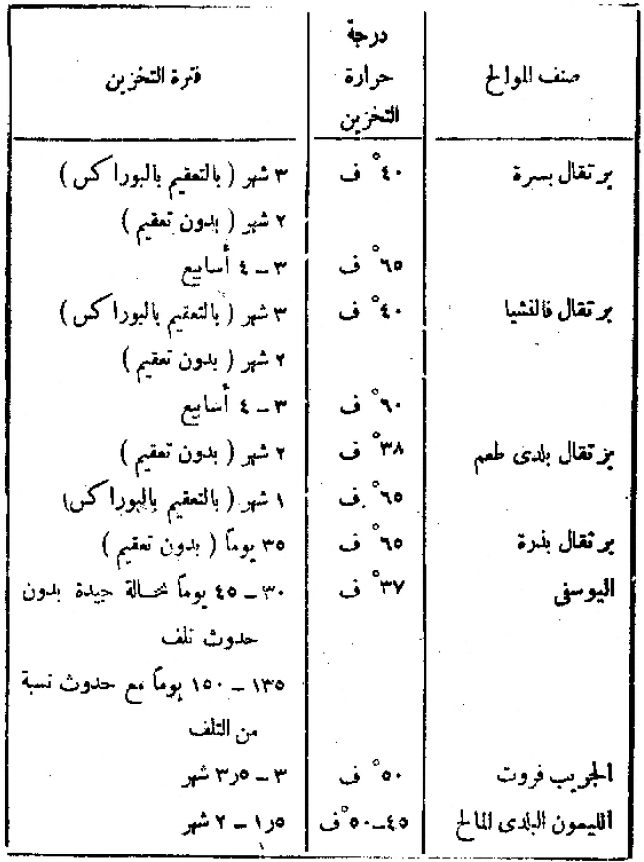 صنف الموالح | درجة حرارة التخزين | فترة التخزين
برتقال بسرة | ٤٠° ف | ٣ شهر ( بالتعقيم بالبوراكس )
٢ شهر ( بدون تعقيم )
٦٥° ف | ٣ – ٤ أسابيع
برتقال فالنشيا | ٤٠° ف | ٣ شهر ( بالتعقيم بالبوراكس )
٢ شهر ( بدون تعقيم )
٦٠° ف | ٣ – ٤ أسابيع
برتقال بلدى طعم | ٣٨° ف | ٢ شهر ( بدون تعقيم )
٦٥° ف | ١ شهر ( بالتعقيم بالبوراكس )
برتقال بذرة | ٦٥° ف | ٣٥ يوماً ( بدون تعقيم )
اليوسفى | ٣٧° ف | ٣٠ – ٤٥ يوماً بحالة جيدة بدون
حدوث تلف
١٣٥ – ١٥٠ يوماً مع حدوث نسبة
من التلف
الجريب فروت | ٥٠° ف | ٣ – ٥ر٣ شهر
الليمون البلدى المالح | ٤٥–٥٠° ف | ٥ر١ – ٢ شهر